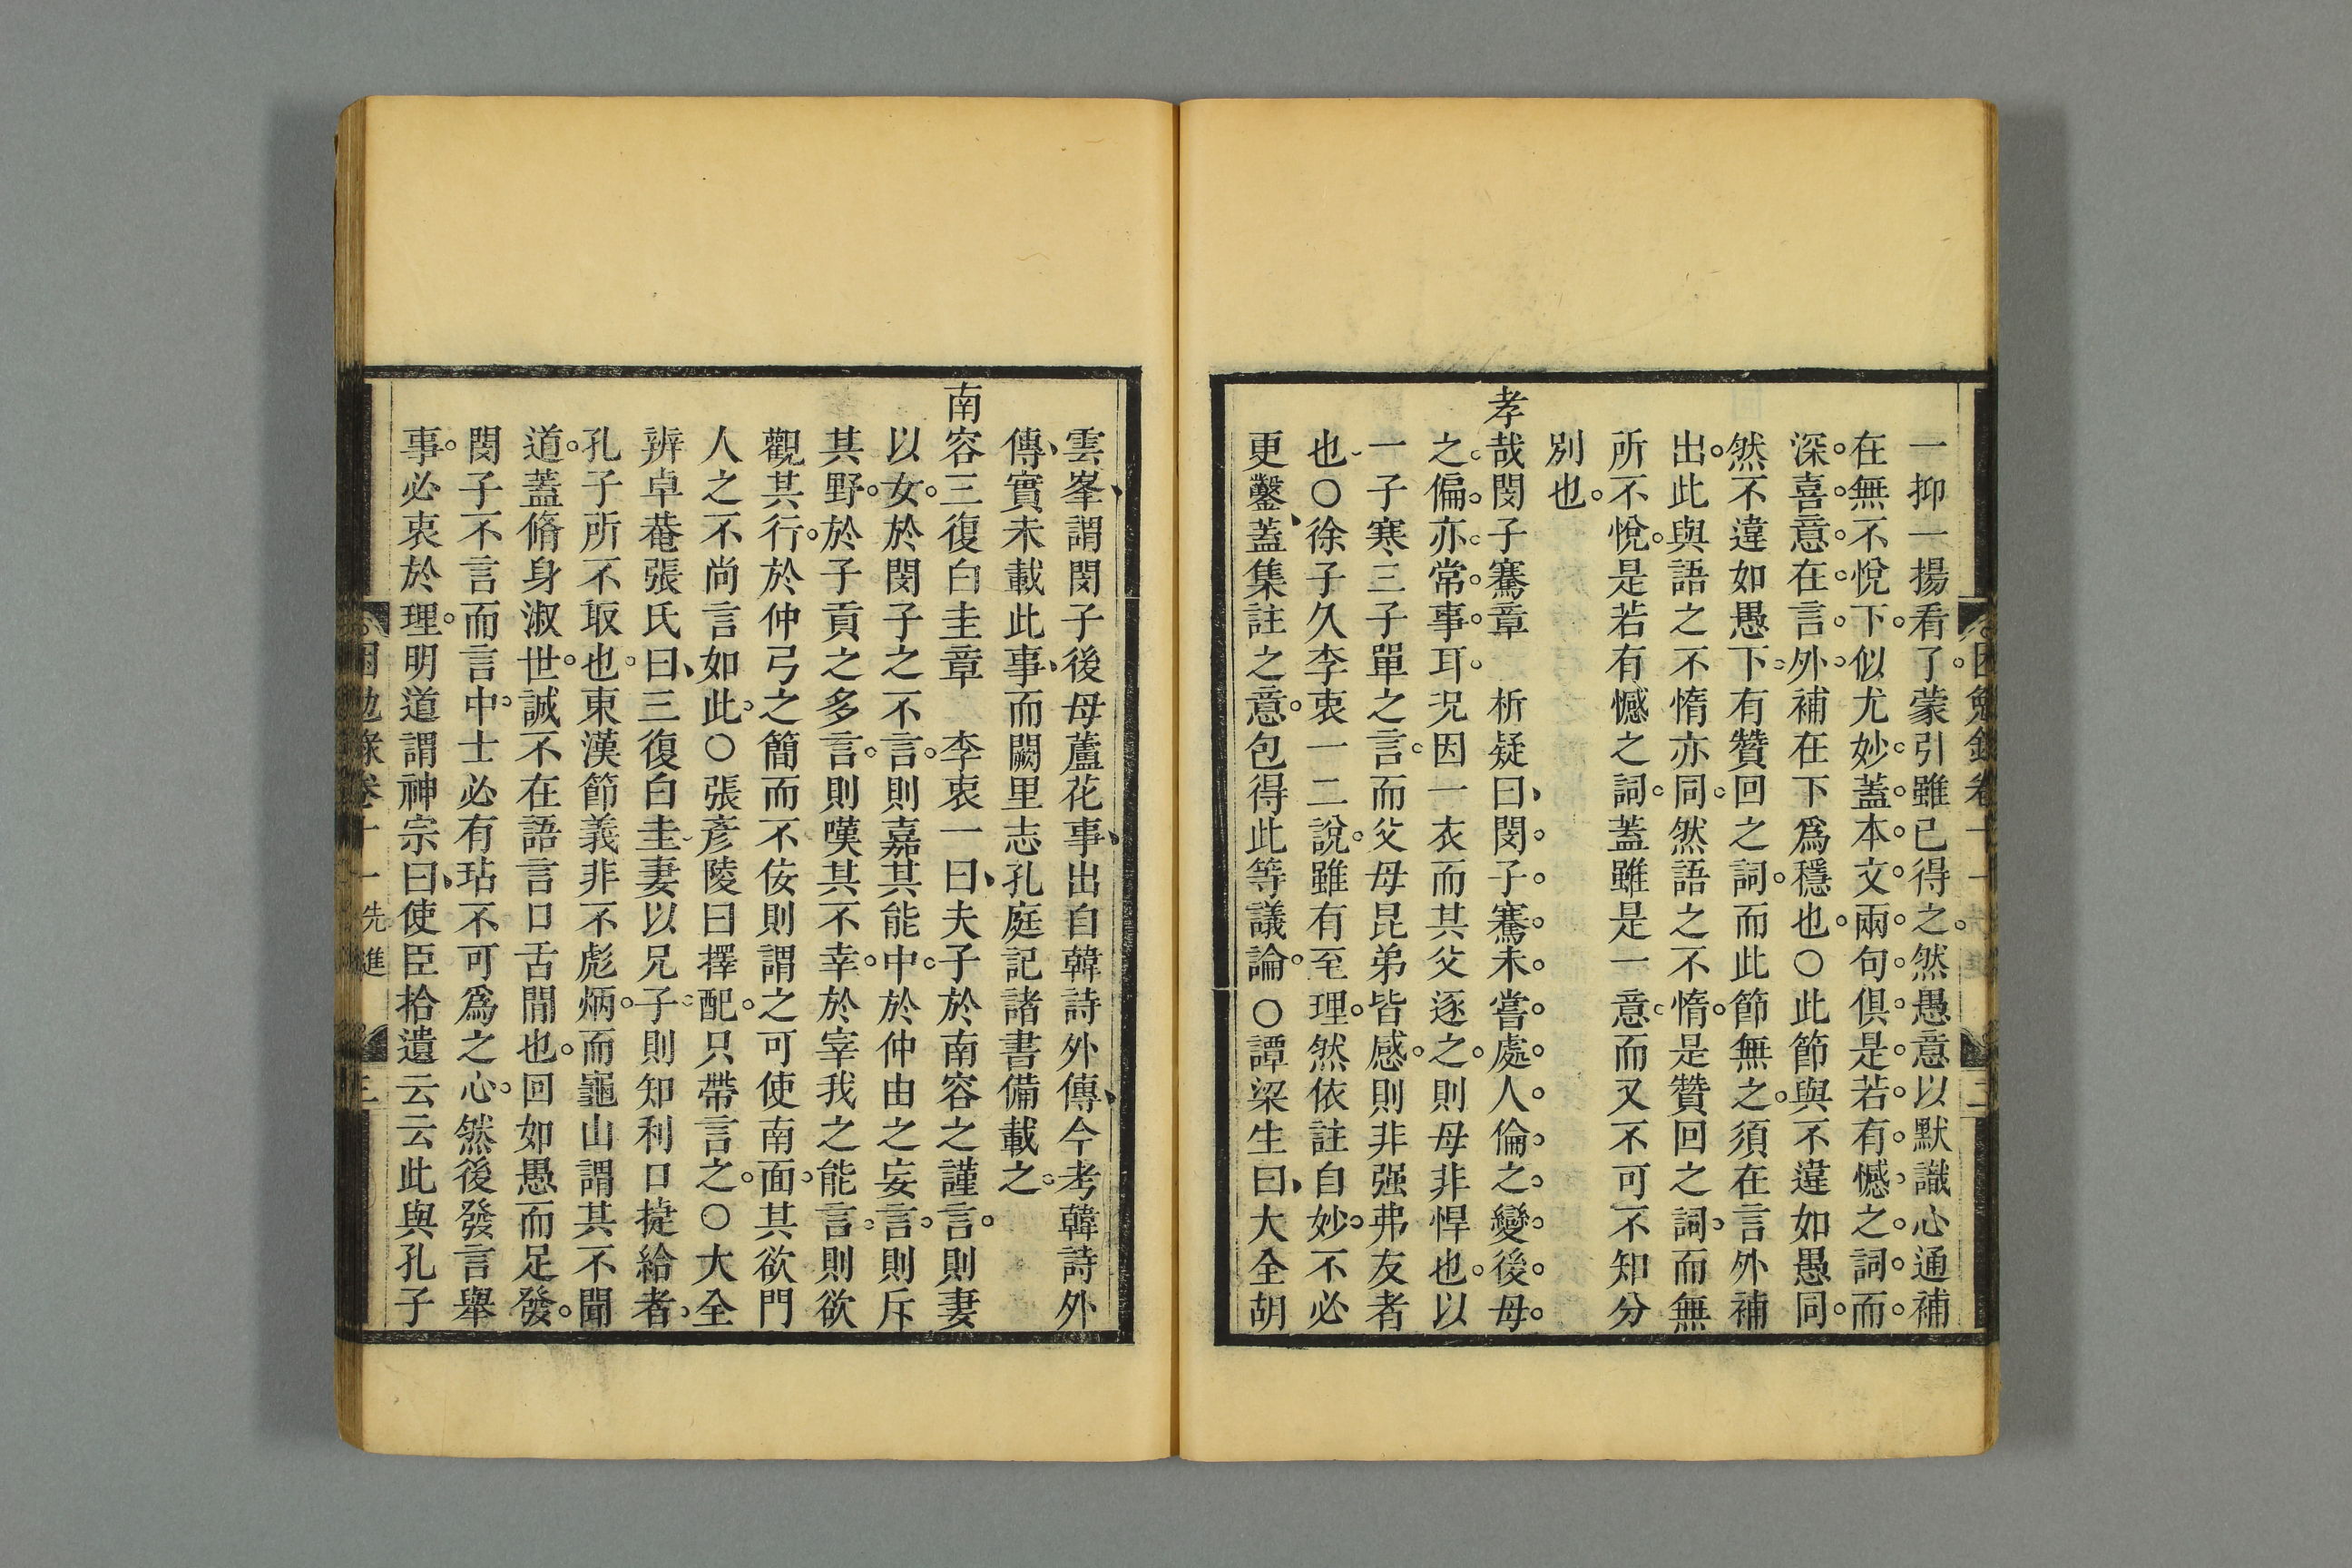 一抑一揚看了蒙引雖已得之然愚意以默識心通補
在無不悅下似尤妙蓋本文兩句俱是若有憾之詞而
深喜意在言外補在下爲穩也○此節與不違如愚同
然不違如愚下有贊回之詞而此節無之須在言外補
出此與語之不惰亦同然語之不惰是贊回之詞而無
所不悅是若有憾之詞蓋雖是一意而又不可不知分
別也
孝哉閔子騫章 析疑曰閔子騫未嘗處人倫之變後母
之偏亦常事耳况因一衣而其父逐之則母非悍也以
一子寒三子單之言而父母昆弟皆感則非强弗友者
也○徐子久李衷一二說雖有至理然依註自妙不必
更鑿蓋集註之意包得此等議論○譚梁生曰大全胡
雲峯謂閔子後母蘆花事出自韓詩外傳今考韓詩外
傳實未載此事而闕里志孔庭記諸書備載之
南容三復白圭章 李衷一曰夫子於南容之謹言則妻
以女於閔子之不言則嘉其能中於仲由之妄言則斥
其野於子貢之多言則嘆其不幸於宰我之能言則欲
觀其行於仲弓之簡而不佞則謂之可使南面其欲門
人之不尚言如此○張彥陵曰擇配只帶言之○大全
辨卓菴張氏曰三復白圭妻以兄子則知利口㨗給者
孔子所不取也東漢節義非不彪炳而龜山謂其不聞
道蓋脩身淑世誠不在語言口舌間也回如愚而足發
閔子不言而言中士必有玷不可爲之心然後發言舉
事必衷於理明道謂神宗曰使臣拾遺云云此與孔子
困勉錄卷十一 先進 三